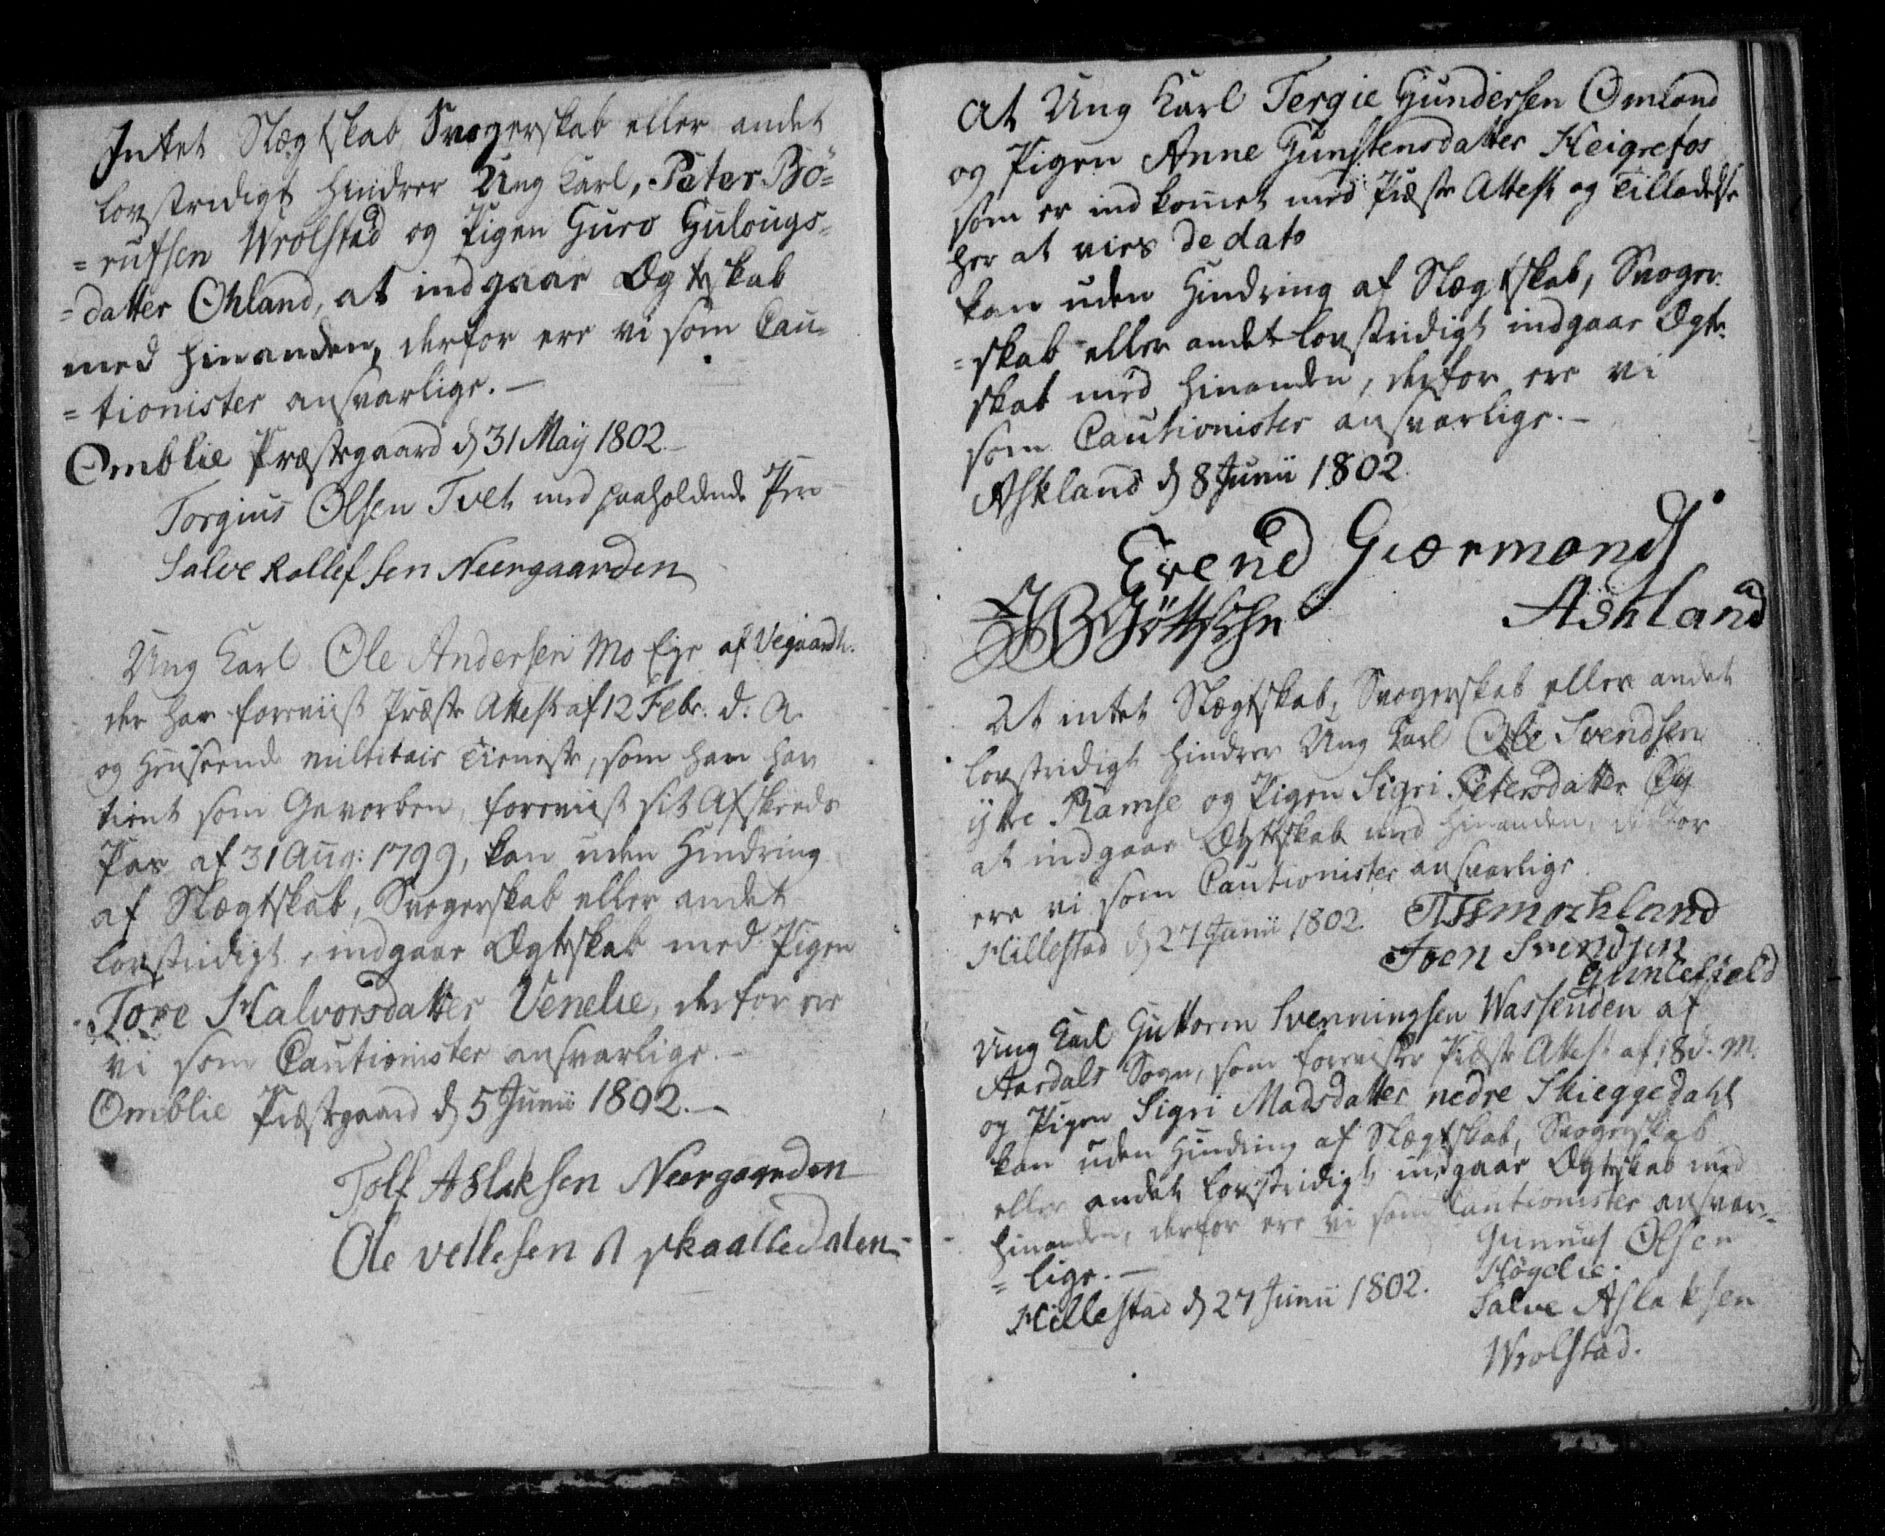 Intet Slægtskab Svogerskab eller andet
lovstridigt hindrer Ung Karl, Peter Bö=
=rufsen Wrolstad og Pigen Guro Gulougs=
=datter Ohland, at indgaae Ægteskab
med hinanden, derfor ere vi som Cau=
=tionister ansvarlige. —
Omblie Præstegaard d 31 May 1802 —
Torgius Olsen Tvet med paaholdende Pen
Salve Rollefsen Neergaarden
Ung Karl Ole Andersen Mo Eye af Vegaardh.
der har foreviist Præste Attest af 12 Febr. d: A.
og henseende militair Tieneste, som han har
tient som Gevorben, foreviist sit Afskeeds
Pas af 31 Aug: 1799, kan uden Hindring
af Slægtskab, Svogerskab eller andet
lovstridigt, indgaae Ægteskab med Pigen
Tore Halvorsdatter Venelie, derfor ere
vi som Cautionister ansvarlige. —
Omblie Præstegaard d 5 Junii 1802. —
Tolf Aslaksen Neergaarden
Ole Vellesen skaalledalen
At Ung Karl Tergie Gundersen Omland
og Pigen Anne Gunstensdatter Heigrefos
som er indkommet med Præste Attest og Tilladelse
her at vies de dato
kan uden Hindring af Slægtskab, Svoger=
=skab eller andet lovstridigt indgaae Ægte=
skab med hinanden, derfor ere vi
som Cautionister ansvarlige. —
Askland d 8 Junii 1802
Trend Giærmonds
Askland
Göttsche
At intet Slægtskab, Svogerskab eller andet
lovstridigt hindrer Ung Karl Ole Svendsen
ytre Ramse og Pigen Sigri Petersdatter
at indgaae Ægteskab med hinanden, derfor
ere vi som Cautionister ansvarlige
Hillestad d 27 Junii 1802.
Joen Svendsen
Ung Karl Guttorm Svenningsen Wassenden af
Aardals Sogn, som foreviste Præste Attest af 18 d. M.
og Pigen Sigri Madsdatter nedre Skieggedahl
kan uden Hindring af Slægtskab, Svogerskab
eller andet lovstridigt indgaae Ægteskab med
hinanden, derfor ere vi som Cautionister ansvar=
=lige. —
Hillestad d 27 Junii 1802.
Gunnuf Olsen
Høgelie.
Salve Aslaksen
Wrolstad.